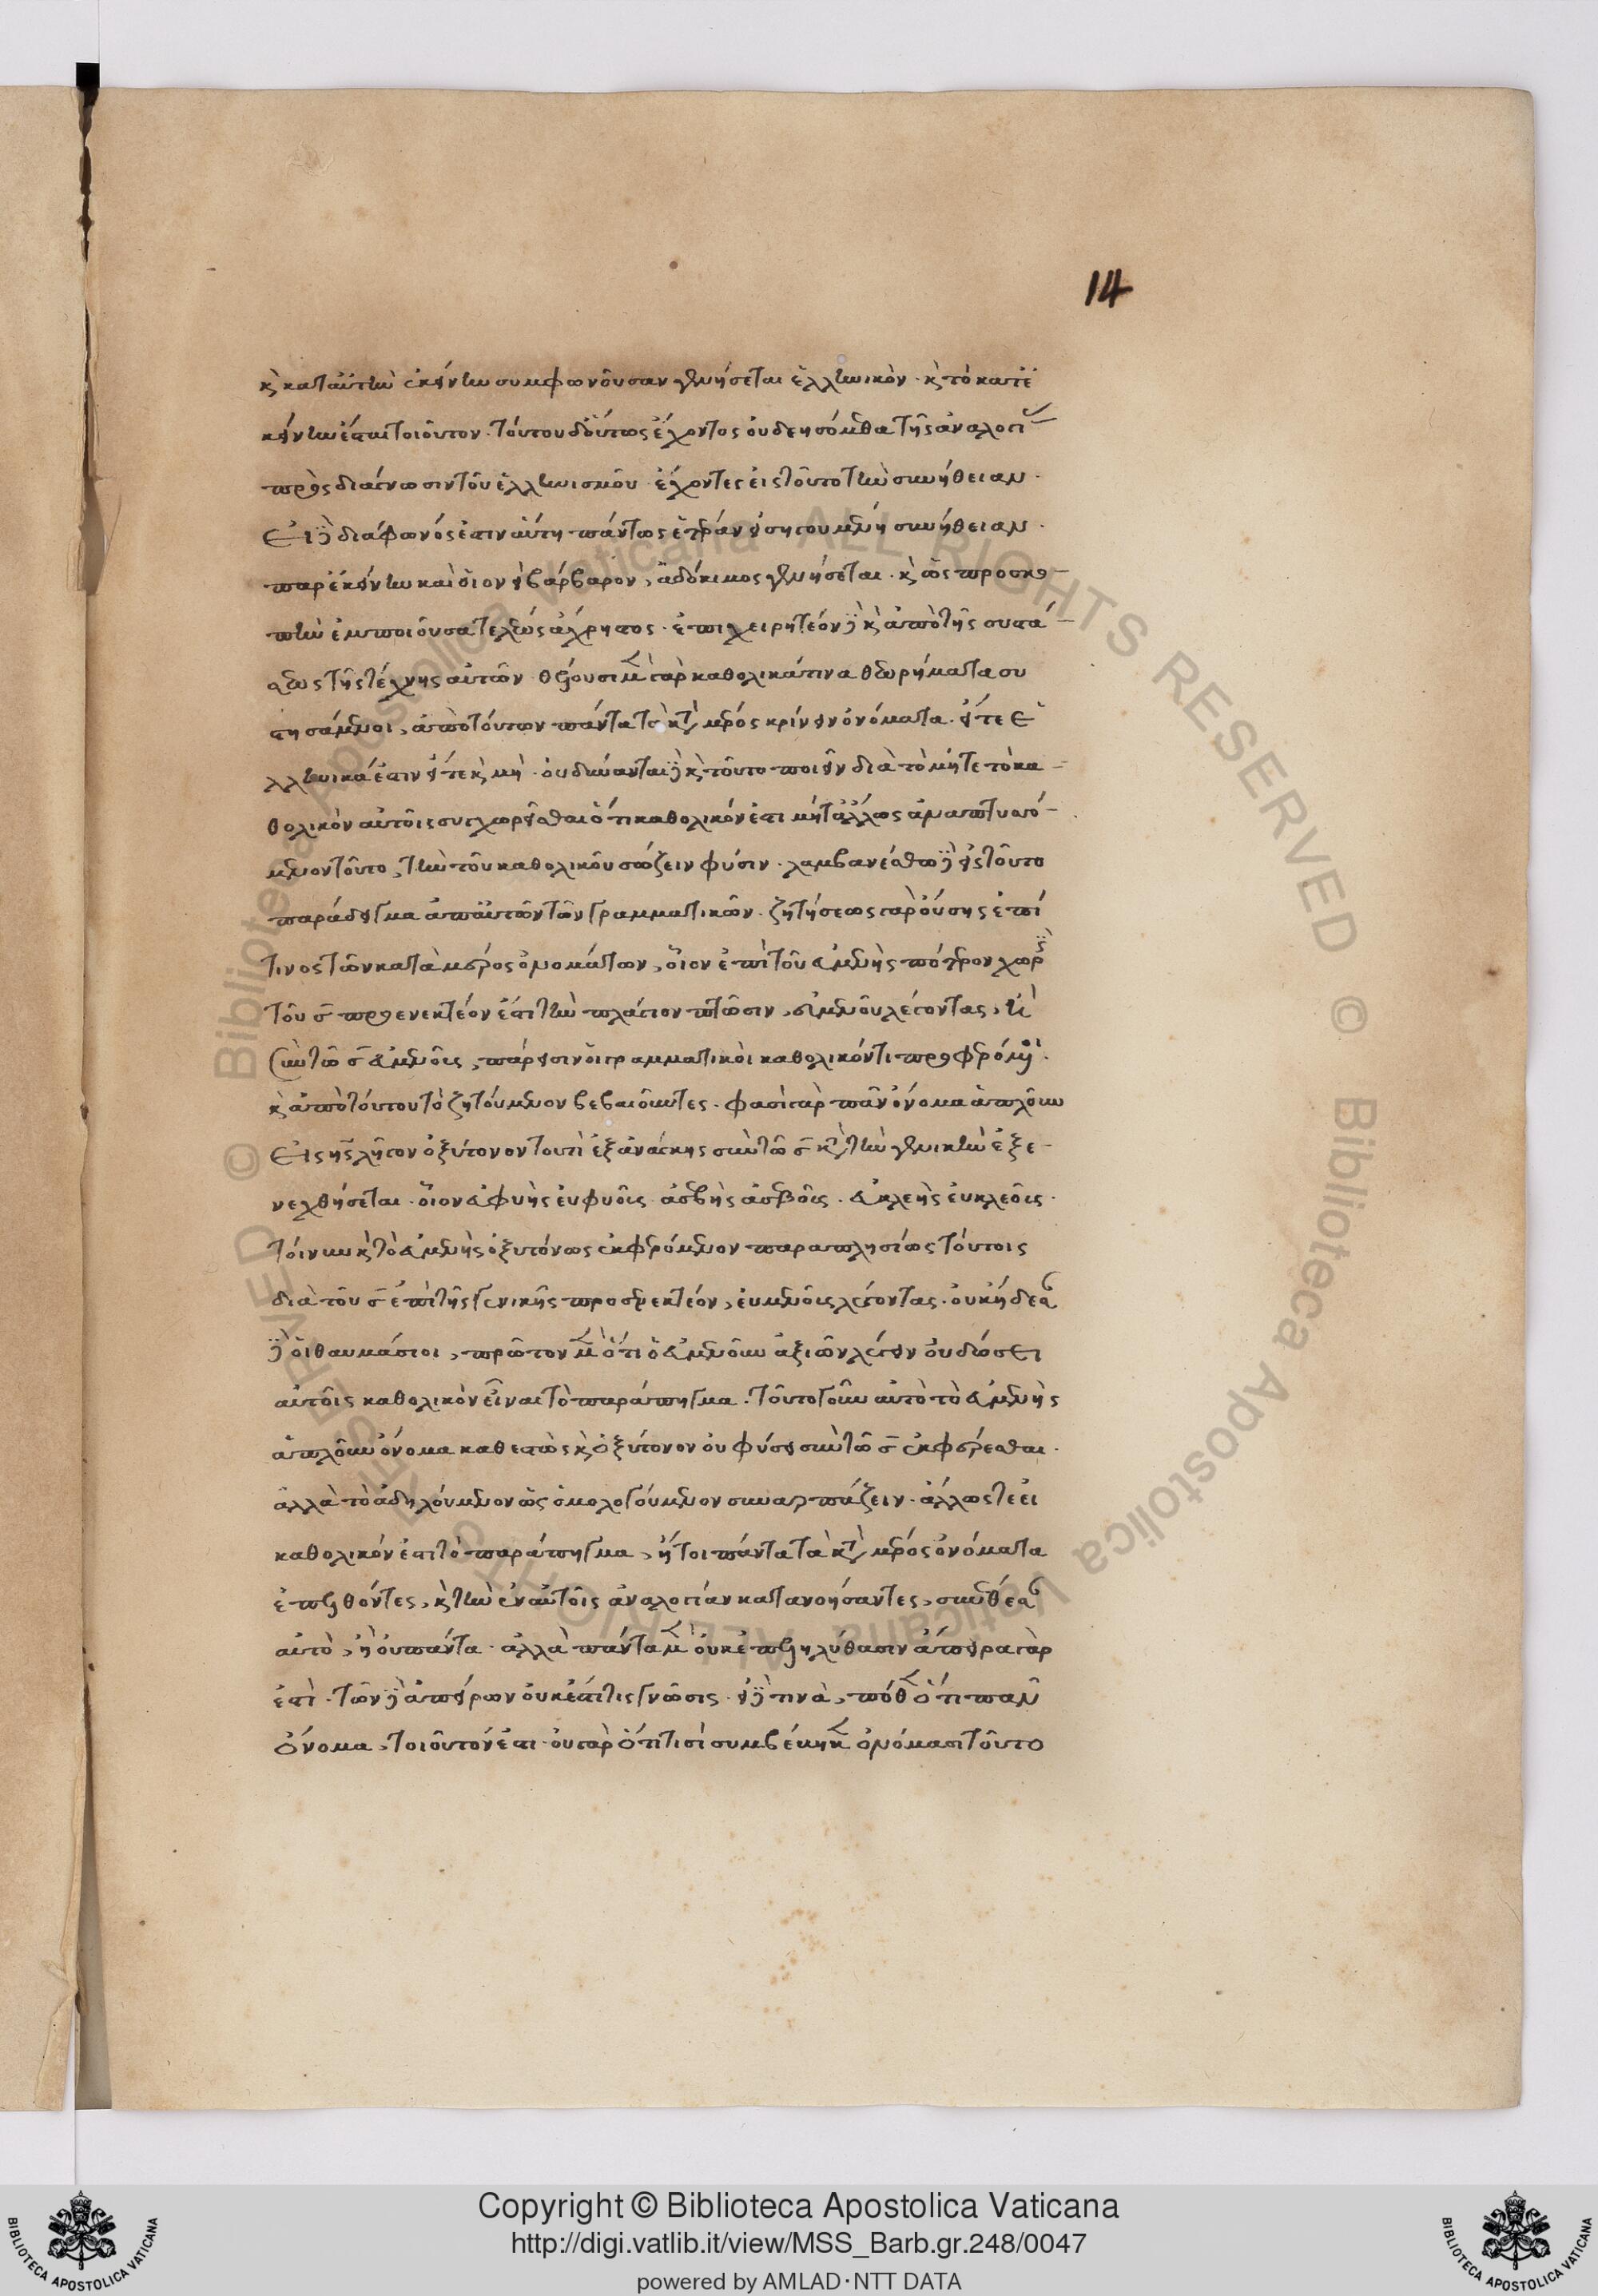 14
κ̀ κατ' αὐτὴν ἐκείνην συμφωνοῦσαν γενήσεται ἑλληνικὸν· κ̀ τὸ κατ' ἐ
κείνην ἔσται τοιοῦτον· τούτου δ' οὕτως ἔχοντος οὐ δεησόμεθα τῆς ἀναλογί
πρὸς διάγνωσιν τοῦ ἑλληνισμοῦ ἔχοντες εἰς τοῦτο τὴν συνήθειαν·
Εἰ δὲ διάφωνός ἐστιν αὕτη πάντως ἑτέραν εἰσηγουμένη συνήθειαν·
παρ' ἐκείνην καὶ οἷον εἰ βάρβαρον, ἀδόκιμος γενήσεται· κ̀ ὡς προσκο-
πὴν ἐμποιοῦσα τελέως ἄχρηστος· ἐπιχειρητέον δὲ κ̀ ἀπὸ τῆς συστά-
σεως τῆς τέχνης αὐτῶν· θέλουσι μὲν γὰρ καθολικά τινα θεωρήματα συ
στησάμενοι, ἀπὸ τούτων πάντα τὰ κατὰ μέρος κρίνειν ὀνόματα· εἴτε ἑ
λληνικά ἐστιν εἴτε κ̀ μὴ· οὐ δύνανται δὲ κ̀ τοῦτο ποιεῖν διὰ τὸ μήτε τὸ κα-
θολικὸν αὐτοῖς συγχωρεῖσθαι ὅτι καθολικόν ἐστι μήτ' ἄλλως ἀναπτυσσό-
μενον τοῦτο, τὴν τοῦ καθολικοῦ σώζειν φύσιν· λαμβανέσθω δὲ εἰς τοῦτο
παράδειγμα ἀπ' αὐτῶν τῶν γραμματικῶν· ζητήσεως γὰρ οὔσης ἐπί
τινος τῶν κατὰ μέρος ὀνομάτων, οἷον ἐπὶ τοῦ εὐμενὴς πότερον χωρὶς
τοῦ σ̄ προενεκτέον ἐστὶ τὴν πλάγιον πτῶσιν, εὐμενοῦ λέγοντας, ἢ
σὺν τῷ σ̄ εὐμενοῦς, πάρεισιν οἱ γραμματικοὶ καθολικόν τι προφερόμενοι·
κ̀ ἀπὸ τούτου τὸ ζητούμενον βεβαιοῦντες· φασὶ γὰρ πᾶν ὄνομα ἁπλοῦν
Εἰς ης λῆγον ὀξύτονον τουτὶ ἐξ ἀνάγκης σὺν τῷ σ̄ κατὰ τὴν γενικὴν ἐξε-
νεχθήσεται· οἷον εὐφυὴς εὐφυοῦς ἀσεβὴς ἀσεβοῦς· εὐκλεὴς εὐκλεοῦς·
τοίνυν κ̀ τὸ εὐμενὴς ὀξυτόνως ἐκφερόμενον παραπλησίως τούτοις
διὰ τοῦ σ̄ ἐπὶ τῆς γενικῆς προσενεκτέον, εὐμενοῦς λέγοντας· οὐκ ᾔδεσ
δὲ οἱ θαυμάσιοι, πρῶτον μὲν ὅτι ὁ εὐμενοῦ ἀξιῶν λέγειν οὐ δώσει
αὐτοῖς καθολικὸν εἶναι τὸ παράπηγμα· τοῦτο γοῦν αὐτὸ τὸ εὐμενὴς
ἁπλοῦν ὄνομα καθεστὼς κ̀ ὀξύτονον οὐ φύσει σὺν τῷ σ̄ ἐκφέρεσθαι·
ἀλλὰ τὸ ἀδηλούμενον ὡς ὁμολογούμενον συναρπάζειν· ἄλλως τε εἰ
καθολικόν ἐστι τὸ παράπηγμα, ἤτοι πάντα τὰ κατὰ μέρος ὀνόματα
ἐπελθόντες, κ̀ τὴν ἐν αὐτοῖς ἀναλογίαν κατανοήσαντες, συνέθεσ
αὐτὸ, ἢ οὐ πάντα· ἀλλὰ πάντα μὲν οὐκ ἐπεληλύθασιν ἄπειρα γὰρ
ἐστὶ· τῶν δὲ ἀπείρων οὐκ ἔστι τις γνῶσις· εἰ δὲ τινὰ, πόθεν ὅτι πᾶν
ὄνομα, τοιοῦτόν ἐστι· οὐ γὰρ ὅτι τισὶ συμβέβηκεν ὀνόμασι τοῦτο
Copyright © Biblioteca Apostolica Vaticana
http://digi.vatlib.it/view/MSS_Barb.gr.248/0047
powered by AMLAD·NTT DATA